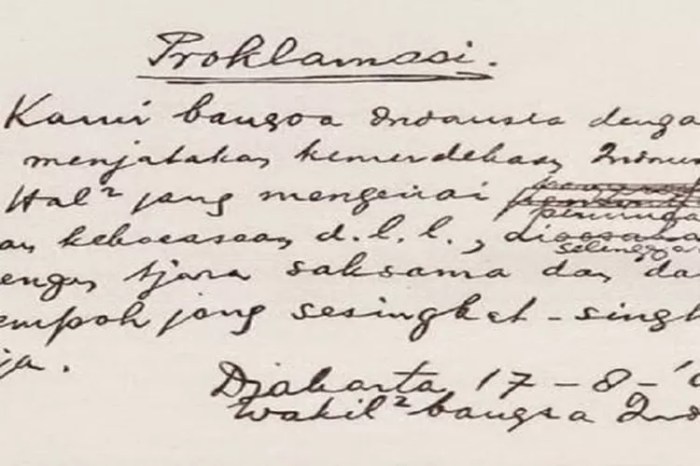 Proklamasi.
Kami bangsa Indonesia denga
menjatakan kemerdekaan Indon
Hal² jang mengenai
peminda
an kekoeasaan d.l.l.,
selengga
engan tjara saksama dan da
empoh jang sesingket-singk
ja.
Djakarta 17-8-'0
Wakil² bangsa Indo